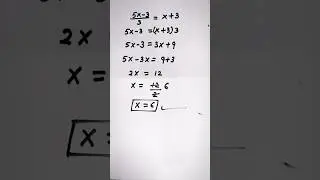 5x-3/3 = x+3
5x-3 = (x+3)3
5x-3 = 3x+9
5x-3x = 9+3
2x = 12
x = 12/2 6
x = 6